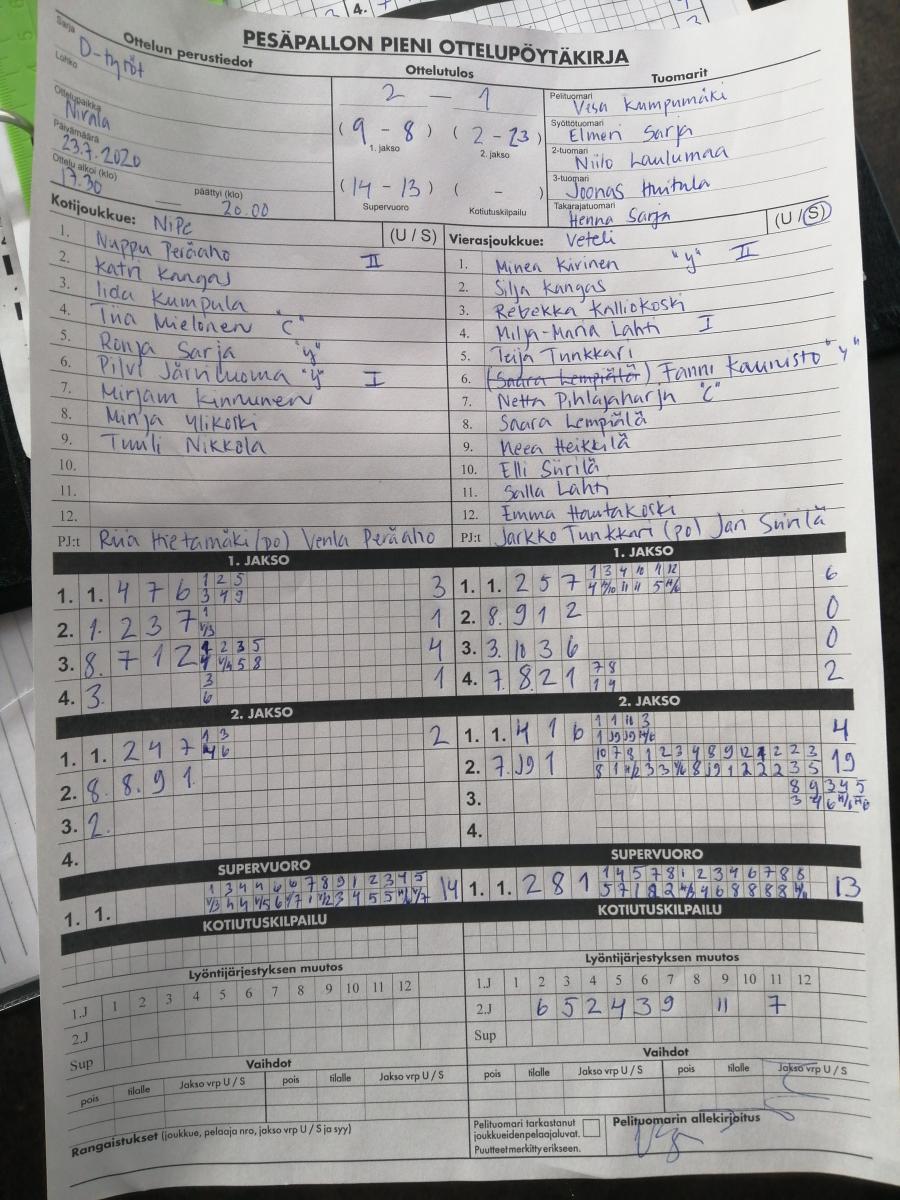 PESÄPALLON PIENI OTTELUPÖYTÄKIRJA
Ottelun perustiedot
Sarja D-tytöt
Lohko
Ottelupaikka Nivala
Päivämäärä 23.7.2020
Ottelu alkoi (klo) 17.30 päättyi (klo) 20.00
Ottelutulos
2 — 1
(9 - 8) (2 - 23)
1. jakso 2. jakso
(14 - 13) ( - )
Supervuoro Kotiutuskilpailu
Tuomarit
Pelituomari Vesa Kumpumäki
Syöttötuomari Elmeri Sarja
2-tuomari Niilo Laulumaa
3-tuomari Joonas Huitula
Takarajatuomari Henna Sarja
Kotijoukkue: NiPe (U / S)
1. Nuppu Peräaho II
2. Katri Kangas
3. Iida Kumpula
4. Tiia Mielonen "C"
5. Ronja Sarja "y"
6. Pilvi Järviluoma "y" I
7. Mirjam Kinnunen
8. Minja Ylikoski
9. Tuuli Nikkola
10.
11.
12.
PJ:t Riia Hietamäki (po) Venla Peräaho
Vierasjoukkue: Veteli (U / S)
1. Minea Kivinen "y" II
2. Silja Kangas
3. Rebekka Kalliokoski
4. Milja-Maria Lahti I
5. Teija Tunkkari
6. (Saara Lempiälä) Fanni Kaunisto "y"
7. Netta Pihlajaharju "C"
8. Saara Lempiälä
9. Neea Heikkilä
10. Elli Siirilä
11. Salla Lahti
12. Emma Hautakoski
PJ:t Jarkko Tunkkari (po) Jari Siirilä
1. JAKSO
1. 1. 4 7 6 1 2 5 3
3 4 9
2. 1. 2 3 7 1 1
3. 8. 7 1 2 2 3 5 4
4. 3. 3 1
6
2. JAKSO
1. 1. 2 4 7 1 3 2
4 6
2. 8. 8. 9 1.
3. 2.
4.
SUPERVUORO
1. 1. 1 3 4 4 6 6 7 8 9 1 2 3 4 5 14
KOTIUTUSKILPAILU
1. JAKSO
1. 1. 2 5 7 1 3 4 10 1 12 6
2. 8. 9 1 2 0
3. 3. 10 3 6 0
4. 7. 8 2 1 7 8 2
1 4
2. JAKSO
1. 1. 4 1 6 1 1 11 3 4
2. 7. 19 1 10 7 8 1 2 3 4 8 9 12 1 2 2 3 19
3. 8 9 3 4 5
4.
SUPERVUORO
1. 1. 2 8 1 1 4 5 7 8 1 2 3 4 6 7 8 8 13
KOTIUTUSKILPAILU
Lyöntijärjestyksen muutos
1.J 1 2 3 4 5 6 7 8 9 10 11 12
2.J
Sup
Vaihdot
pois tilalle Jakso vrp U / S pois tilalle Jakso vrp U / S
Rangaistukset (joukkue, pelaaja nro, jakso vrp U / S ja syy)
Lyöntijärjestyksen muutos
1.J 1 2 3 4 5 6 7 8 9 10 11 12
2.J 6 5 2 4 3 9 11 7
Sup
Vaihdot
pois tilalle Jakso vrp U / S pois tilalle Jakso vrp U / S
Pelituomari tarkastanut
joukkueidenpelaajaluvat.
Puutteet merkitty erikseen.
Pelituomarin allekirjoitus